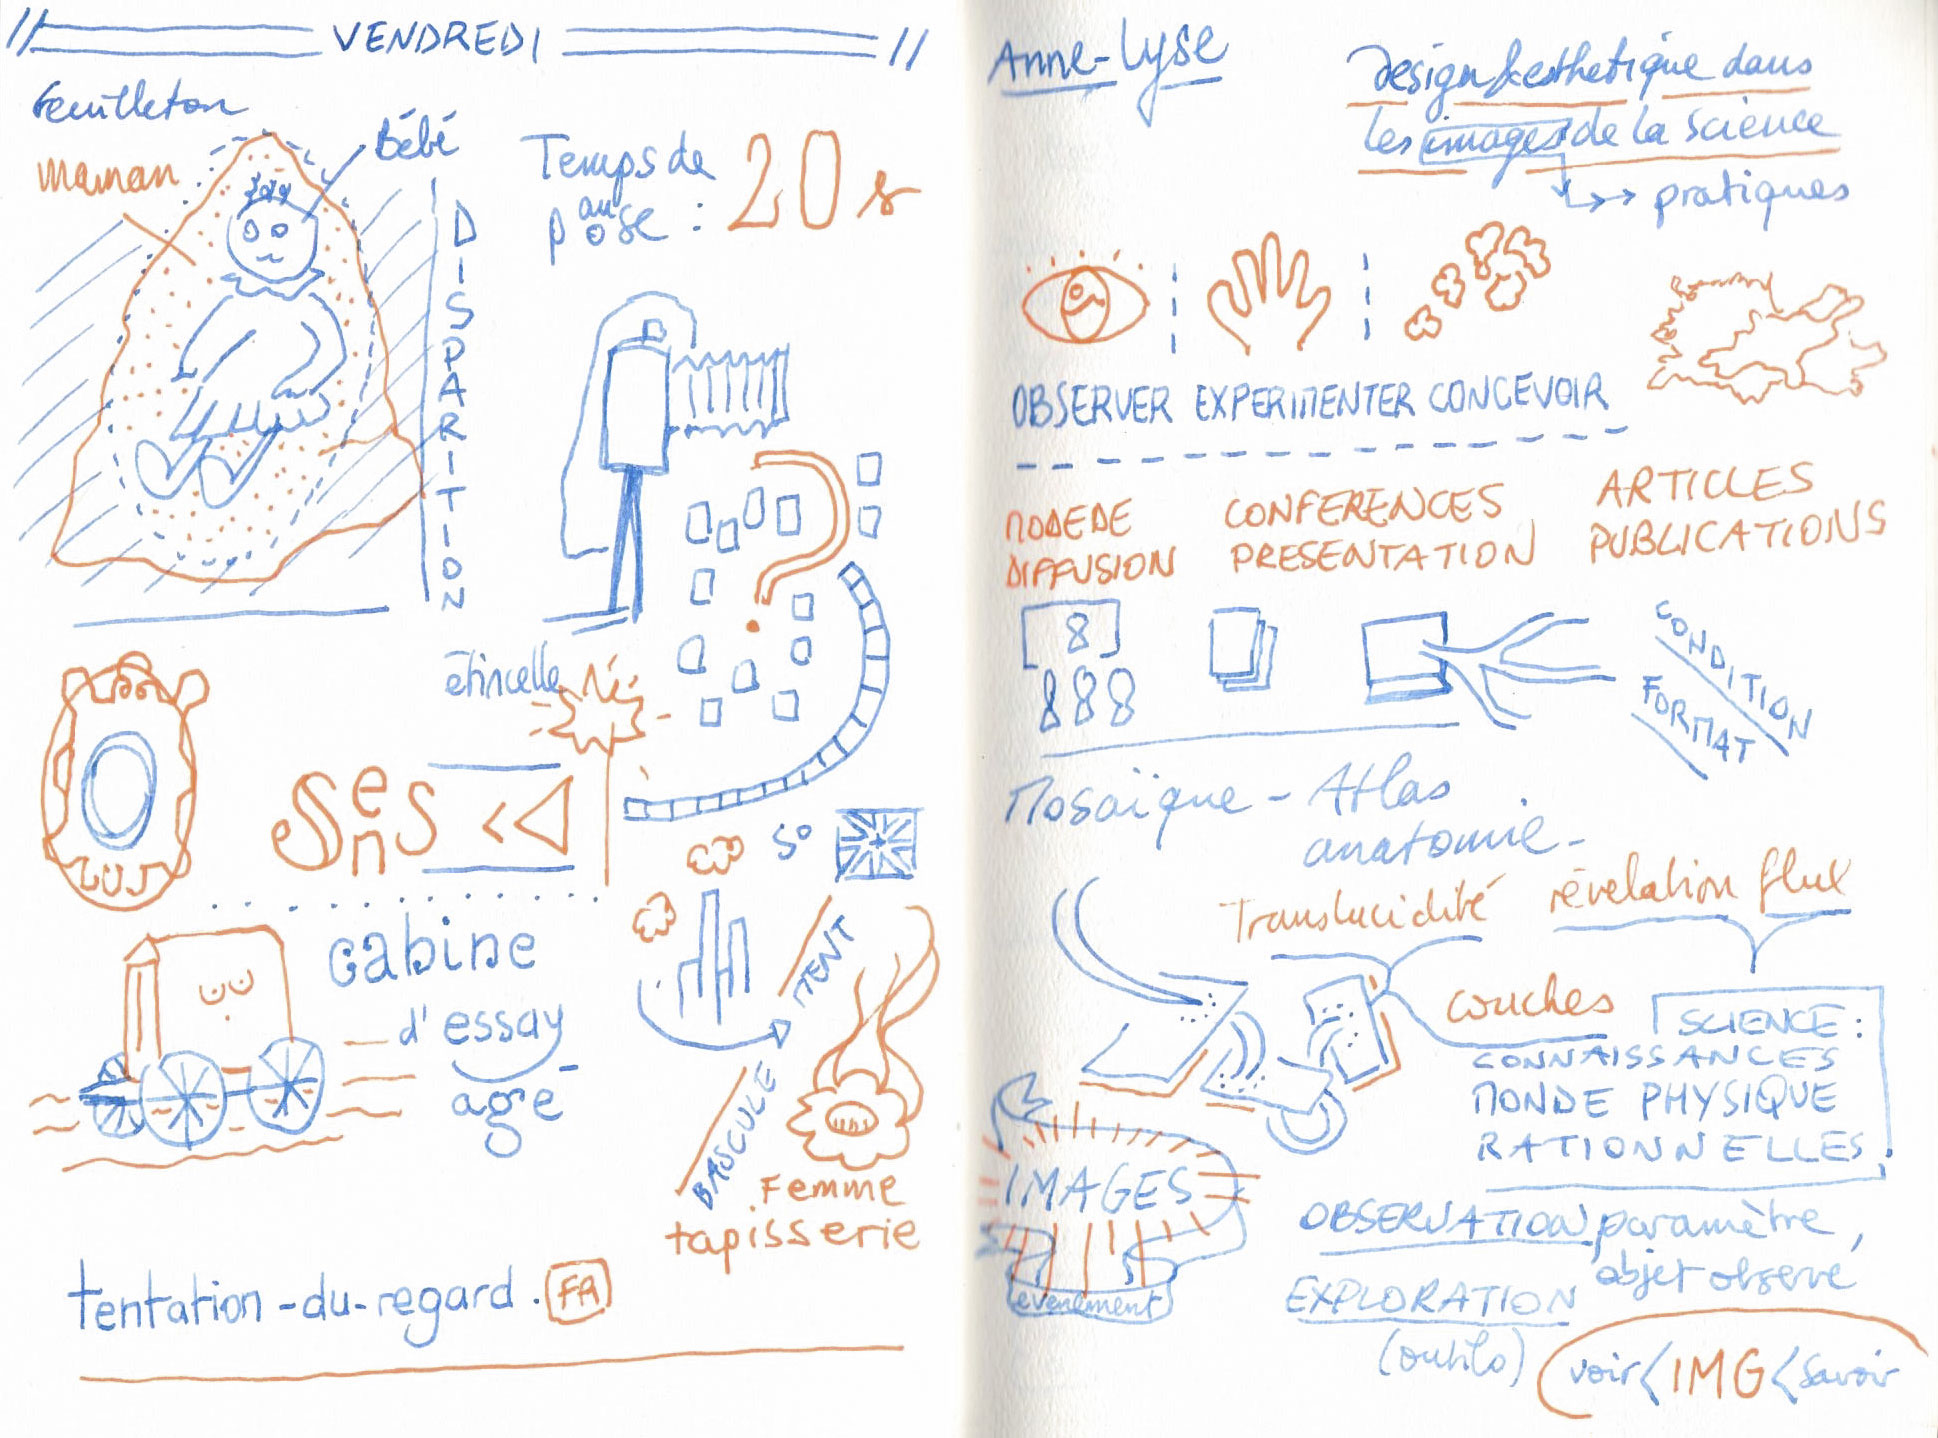 VENDREDI
Feuilleton
Bébé
maman
DISPARITION
Temps de
pause : 20 s
étincelle
Sens
cabine
d'essay
age
5°
BASCULE
MENT
Femme
tapisserie
tentation-du-regard. FA
Anne-Lyse
Design & esthétique dans
les images de la science
pratiques
OBSERVER EXPERIMENTER CONCEVOIR
MODE DE
DIFFUSION
CONFERENCES
PRESENTATION
ARTICLES
PUBLICATIONS
8
888
CONDITION
FORMAT
Mosaïque - Atlas
anatomie -
Translucidité
révelation flux
couches
SCIENCE :
CONNAISSANCES
MONDE PHYSIQUE
RATIONNELLES
IMAGES
evenement
OBSERVATION paramètre,
objet observé
EXPLORATION
(outils)
voir < IMG < savoir